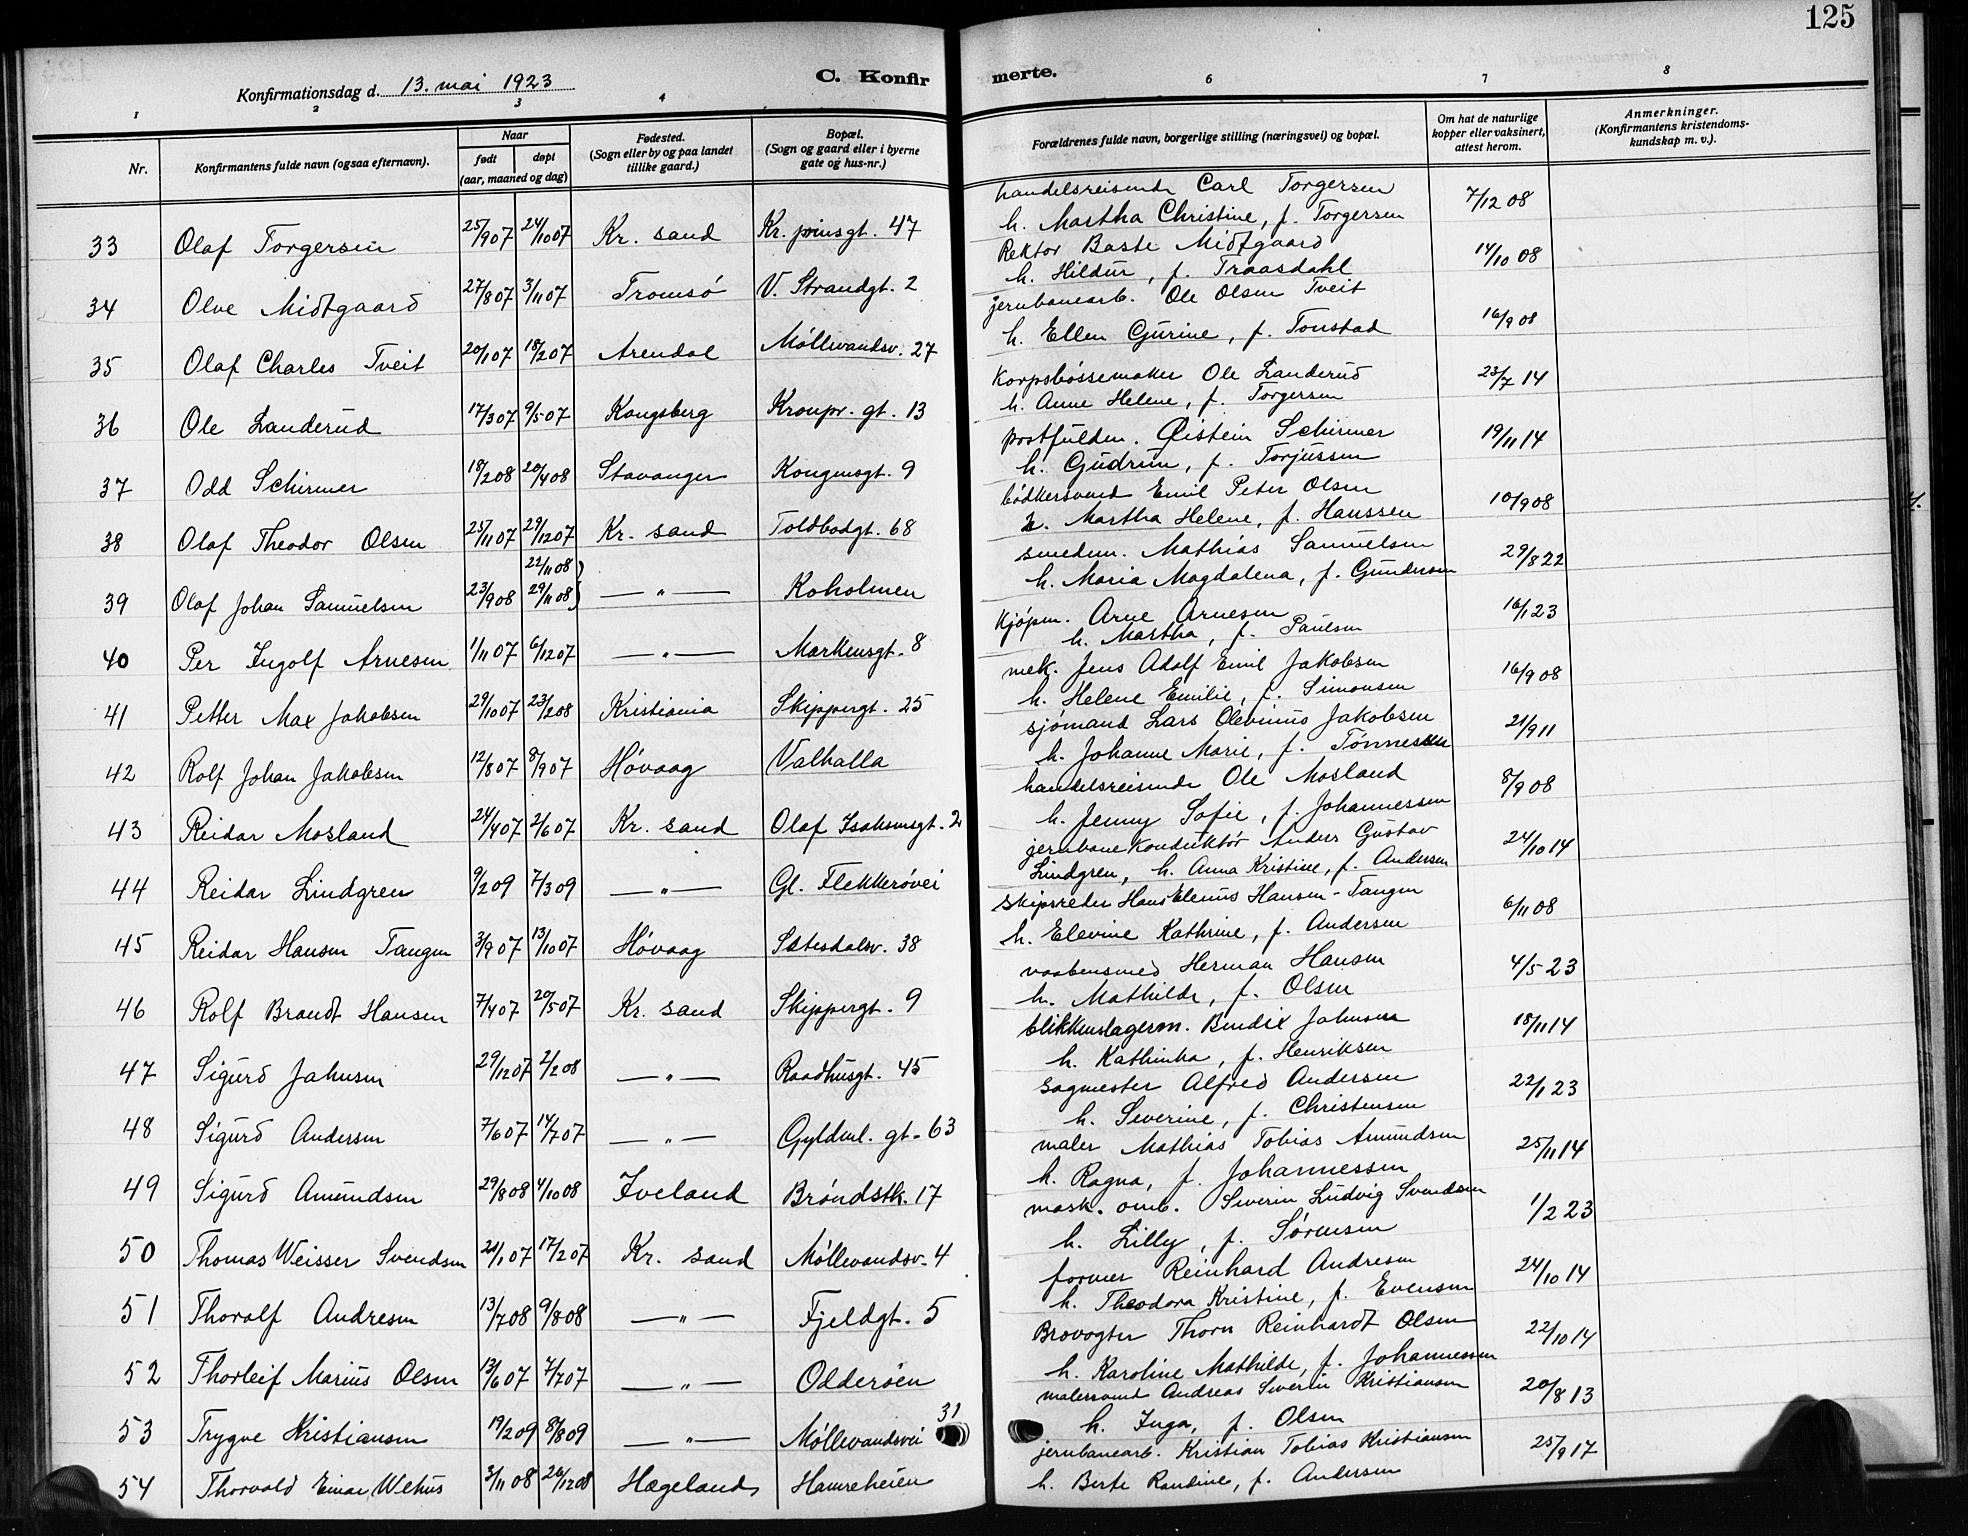 125
Konfirmationsdag d. 13. mai 1923
C. Konfir
merte.
1 2 3 4 6 7 8
Nr.
Konfirmantens fulde navn (ogsaa efternavn).
Naar
født døpt
(aar, maaned og dag)
Fødested.
(Sogn eller by og paa landet
tillike gaard.)
Bopæl.
(Sogn og gaard eller i byerne
gate og hus-nr.)
Forældrenes fulde navn, borgerlige stilling (næringsvei) og bopæl.
Om hat de naturlige
kopper eller vaksinert,
attest herom.
Anmerkninger.
(Konfirmantens kristendoms-
kundskap m. v.).
33 Olaf Torgersen 25/9 07 24/10 07 Kr. sand Kr. prinsgt. 47
handelsreisende Carl Torgersen
h. Martha Christine, f. Torgersen 7/12 08
34 Olve Midtgaard 27/8 07 3/11 07 Tromsø V. Strandgt. 2
Rektor Baste Midtgaard
h. Hildur, f. Traasdahl 14/10 08
35 Olaf Charles Tveit 20/1 07 18/2 07 Arendal Møllevandsv. 27
jernbanearb. Ole Olsen Tveit
h. Ellen Gurine, f. Tonstad 16/9 08
36 Ole Landerud 17/3 07 9/5 07 Kongsberg Kronpr. gt. 13
Korpsbøssemaker Ole Landerud
h. Anne Helene, f. Torgersen 23/7 14
37 Odd Schirmer 18/2 08 20/4 08 Stavanger Kongensgt. 9
postfuldm. Øistein Schirmer
h. Gudrun, f. Torjussen 19/11 14
38 Olaf Theodor Olsen 25/11 07 29/12 07 Kr. sand Toldbodgt. 68
bødkersvend Emil Peter Olsen
h. Martha Helene, f. Hanssen 10/9 08
22/11 08)
39 Olaf Johan Samuelsen 23/9 08 29/11 08) — " — Koholmen
smedm. Mathias Samuelsen
h. Maria Magdalena, f. Gundersen 29/8 22
40 Per Ingolf Arnesen 1/11 07 6/12 07 — " — Markensgt. 8
Kjøpm. Arne Arnesen
h. Martha, f. Paulsen 16/1 23
41 Petter Max Jakobsen 29/10 07 23/2 08 Kristiania Skippergt. 25
mek. Jens Adolf Emil Jakobsen
h. Helene Emilie, f. Simonsen 16/9 08
42 Rolf Johan Jakobsen 12/8 07 8/9 07 Høvaag Valhalla
sjømand Lars Olevinus Jakobsen
h. Johanne Marie, f. Tønnesen 21/9 11
43 Reidar Mosland 24/4 07 2/6 07 Kr. sand Olaf Isaksensgt. 2
handelsreisende Ole Mosland
h. Jenny Sofie, f. Johannessen 8/9 08
44 Reidar Lindgren 9/2 09 7/3 09 — " — Gl. Flekkerøvei
jernbanekonduktør Anders Gustav
Lindgren, h. Anna Kristine, f. Andersen 24/10 14
45 Reidar Hansen Tangen 3/9 07 13/10 07 Høvaag Sætesdalsv. 38
Skipsreder Hans Elenius Hansen-Tangen
h. Elevine Kathrine, f. Andersen 6/11 08
46 Rolf Brandt Hansen 7/4 07 20/5 07 Kr. sand Skippergt. 9
vaabensmed Herman Hansen
h. Mathilde, f. Olsen 4/5 23
47 Sigurd Jahnsen 29/12 07 2/2 08 — " — Raadhusgt. 45
blikkenslagerm. Bendix Jahnsen
h. Kathinka, f. Henriksen 18/11 14
48 Sigurd Andersen 7/6 07 14/7 07 — " — Gyldenl. gt. 63
Sagmester Alfred Andersen
h. Severine, f. Christensen 22/1 23
49 Sigurd Amundsen 29/8 08 4/10 08 Iveland Brøndstk. 17
maler Mathias Tobias Amundsen
h. Ragna, f. Johannessen 25/11 14
50 Thomas Weisser Svendsen 21/1 07 17/2 07 Kr. sand Møllevandsv. 4
mask. omb. Severin Ludvig Svendsen
h. Lilly, f. Sørensen 1/2 23
51 Thoralf Andresen 13/7 08 9/8 08 — " — Fjeldgt. 5
former Reinhard Andresen
h. Theodora Kristine, f. Evensen 24/10 14
52 Thorleif Marius Olsen 13/6 07 7/7 07 — " — Odderøen
Brovogter Thorn Reinhardt Olsen
h. Karoline Mathilde, f. Johannessen 22/10 14
53 Trygve Kristiansen 19/2 09 8/8 09 — " — Møllevandsvei 31
malersvend Andreas Severin Kristiansen
h. Inga, f. Olsen 20/8 13
54 Thorvald Einar Wehus 3/11 08 26/12 08 Hægeland Hamreheien
jernbanearb. Kristian Tobias Kristiansen
h. Berte Randine, f. Andersen 25/9 17